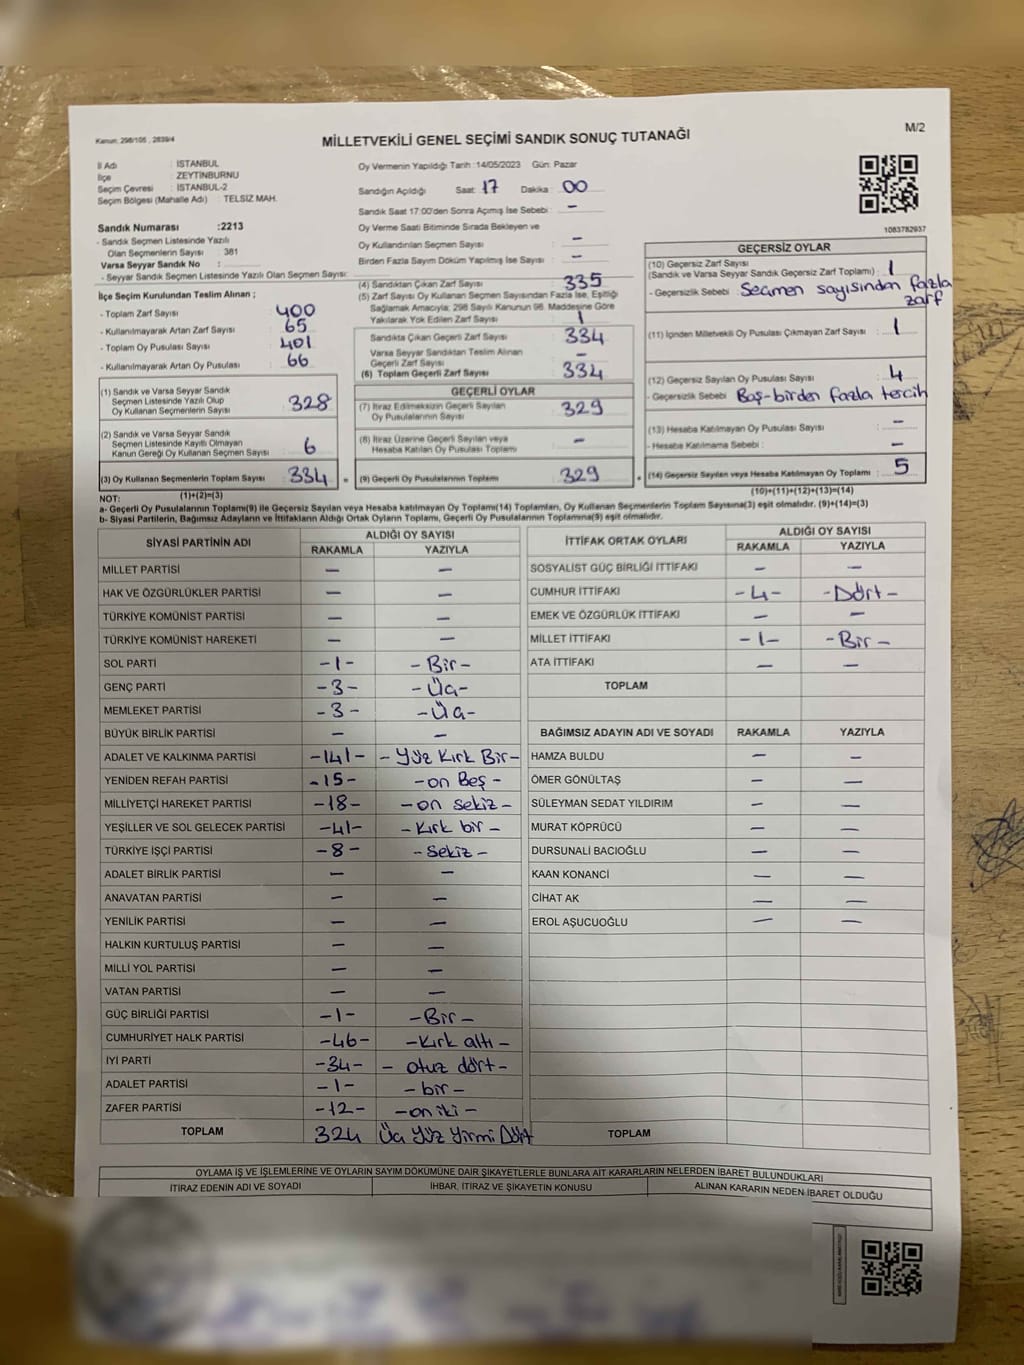 Kanun: 298/105 , 2839/4
MİLLETVEKİLİ GENEL SEÇİMİ SANDIK SONUÇ TUTANAĞI
M/2
İl Adı : İSTANBUL
İlçe : ZEYTİNBURNU
Seçim Çevresi : İSTANBUL-2
Seçim Bölgesi (Mahalle Adı) : TELSİZ MAH.
Sandık Numarası :2213
- Sandık Seçmen Listesinde Yazılı
Olan Seçmenlerin Sayısı : 381
Varsa Seyyar Sandık No :
- Seyyar Sandık Seçmen Listesinde Yazılı Olan Seçmen Sayısı:
İlçe Seçim Kurulundan Teslim Alınan ;
- Toplam Zarf Sayısı : 400
- Kullanılmayarak Artan Zarf Sayısı : 65
- Toplam Oy Pusulası Sayısı : 401
- Kullanılmayarak Artan Oy Pusulası : 66
(1) Sandık ve Varsa Seyyar Sandık
Seçmen Listesinde Yazılı Olup
Oy Kullanan Seçmenlerin Sayısı : 328
(2) Sandık ve Varsa Seyyar Sandık
Seçmen Listesinde Kayıtlı Olmayan
Kanun Gereği Oy Kullanan Seçmen Sayısı : 6
(3) Oy Kullanan Seçmenlerin Toplam Sayısı : 334
(1)+(2)=(3)
Oy Vermenin Yapıldığı Tarih :14/05/2023 Gün: Pazar
Sandığın Açıldığı Saat: 17 Dakika : 00
Sandık Saat 17:00'den Sonra Açımış İse Sebebi : -
Oy Verme Saati Bitiminde Sırada Bekleyen ve
Oy Kullandırılan Seçmen Sayısı : -
Birden Fazla Sayım Döküm Yapılmış İse Sayısı : -
(4) Sandıktan Çıkan Zarf Sayısı : 335
(5) Zarf Sayısı Oy Kullanan Seçmen Sayısından Fazla İse, Eşitliği
Sağlamak Amacıyla; 298 Sayılı Kanunun 98. Maddesine Göre
Yakılarak Yok Edilen Zarf Sayısı : 1
Sandıkta Çıkan Geçerli Zarf Sayısı : 334
Varsa Seyyar Sandıktan Teslim Alınan
Geçerli Zarf Sayısı : -
(6) Toplam Geçerli Zarf Sayısı : 334
GEÇERLİ OYLAR
(7) İtiraz Edilmeksizin Geçerli Sayılan
Oy Pusulalarının Sayısı : 329
(8) İtiraz Üzerine Geçerli Sayılan veya
Hesaba Katılan Oy Pusulası Toplamı : -
= (9) Geçerli Oy Pusulalarının Toplamı : 329
1083782937
GEÇERSİZ OYLAR
(10) Geçersiz Zarf Sayısı
(Sandık ve Varsa Seyyar Sandık Geçersiz Zarf Toplamı) : 1
- Geçersizlik Sebebi : Seçmen sayısından fazla
zarf
(11) İçinden Milletvekili Oy Pusulası Çıkmayan Zarf Sayısı : 1
(12) Geçersiz Sayılan Oy Pusulası Sayısı : 4
- Geçersizlik Sebebi : Boş-birden fazla tercih
(13) Hesaba Katılmayan Oy Pusulası Sayısı : -
- Hesaba Katılmama Sebebi : -
+ (14) Geçersiz Sayılan veya Hesaba Katılmayan Oy Toplamı : 5
(10)+(11)+(12)+(13)=(14)
NOT:
a- Geçerli Oy Pusulalarının Toplamı(9) ile Geçersiz Sayılan veya Hesaba katılmayan Oy Toplamı(14) Toplamları, Oy Kullanan Seçmenlerin Toplam Sayısına(3) eşit olmalıdır. (9)+(14)=(3)
b- Siyasi Partilerin, Bağımsız Adayların ve İttifakların Aldığı Ortak Oyların Toplamı, Geçerli Oy Pusulalarının Toplamına(9) eşit olmalıdır.
SİYASİ PARTİNİN ADI ALDIĞI OY SAYISI
RAKAMLA YAZIYLA
MİLLET PARTİSİ - -
HAK VE ÖZGÜRLÜKLER PARTİSİ - -
TÜRKİYE KOMÜNİST PARTİSİ - -
TÜRKİYE KOMÜNİST HAREKETİ - -
SOL PARTİ -1- -Bir-
GENÇ PARTİ -3- -Üç-
MEMLEKET PARTİSİ -3- -Üç-
BÜYÜK BİRLİK PARTİSİ - -
ADALET VE KALKINMA PARTİSİ -141- -Yüz Kırk Bir-
YENİDEN REFAH PARTİSİ -15- -on Beş-
MİLLİYETÇİ HAREKET PARTİSİ -18- -on sekiz-
YEŞİLLER VE SOL GELECEK PARTİSİ -41- -Kırk bir-
TÜRKİYE İŞÇİ PARTİSİ -8- -Sekiz-
ADALET BİRLİK PARTİSİ - -
ANAVATAN PARTİSİ - -
YENİLİK PARTİSİ - -
HALKIN KURTULUŞ PARTİSİ - -
MİLLİ YOL PARTİSİ - -
VATAN PARTİSİ - -
GÜÇ BİRLİĞİ PARTİSİ -1- -Bir-
CUMHURİYET HALK PARTİSİ -46- -Kırk altı-
İYİ PARTİ -34- -otuz dört-
ADALET PARTİSİ -1- -bir-
ZAFER PARTİSİ -12- -on iki-
TOPLAM 324 Üç Yüz Yirmi Dört
İTTİFAK ORTAK OYLARI ALDIĞI OY SAYISI
RAKAMLA YAZIYLA
SOSYALİST GÜÇ BİRLİĞİ İTTİFAKI - -
CUMHUR İTTİFAKI -4- -Dört-
EMEK VE ÖZGÜRLÜK İTTİFAKI - -
MİLLET İTTİFAKI -1- -Bir-
ATA İTTİFAKI - -
TOPLAM
BAĞIMSIZ ADAYIN ADI VE SOYADI RAKAMLA YAZIYLA
HAMZA BULDU - -
ÖMER GÖNÜLTAŞ - -
SÜLEYMAN SEDAT YILDIRIM - -
MURAT KÖPRÜCÜ - -
DURSUNALİ BACIOĞLU - -
KAAN KONANCİ - -
CİHAT AK - -
EROL AŞUCUOĞLU - -
TOPLAM
OYLAMA İŞ VE İŞLEMLERİNE VE OYLARIN SAYIM DÖKÜMÜNE DAİR ŞİKAYETLERLE BUNLARA AİT KARARLARIN NELERDEN İBARET BULUNDUKLARI
İTİRAZ EDENİN ADI VE SOYADI İHBAR, İTİRAZ VE ŞİKAYETİN KONUSU ALINAN KARARIN NEDEN İBARET OLDUĞU